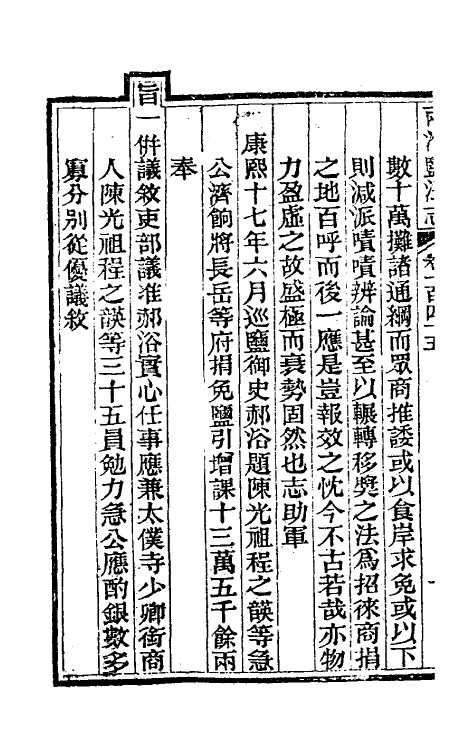 兩淮鹽法志 卷一百四十五 一
數十萬攤諸通綱而眾商推諉或以食岸求免或以下
則減派嘖嘖辨論甚至以輾轉移獎之法爲招徠商捐
之地百呼而後一應是豈報效之忱今不古若哉亦物
力盈虛之故盛極而衰勢固然也志助軍
康熙十七年六月巡鹽御史郝浴題陳光祖程之䪝等急
公濟餉將長岳等府捐免鹽引增課十三萬五千餘兩
奉
旨一併議敘吏部議准郝浴實心任事應兼太僕寺少卿銜商
人陳光祖程之䪝等三十五員勉力急公應酌銀數多
寡分別從優議敘